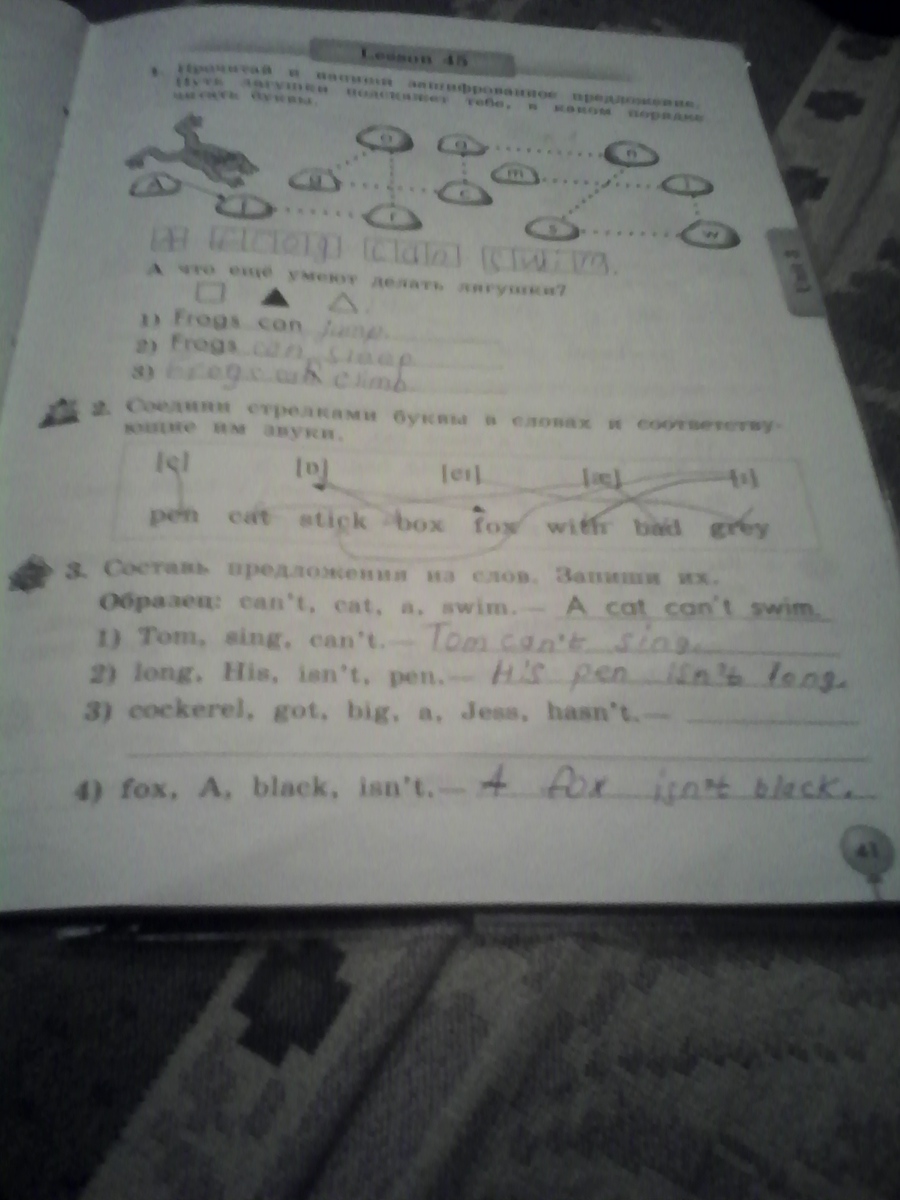 Lesson 45
1. Прочитай и напиши зашифрованное предложение.
Путь лягушки подскажет тебе, в каком порядке
читать буквы.
o a n
A g c m i
f r s w
A frog can swim.
А что ещё умеют делать лягушки?
1) Frogs can jump.
2) Frogs can sleep
3) Frogs can climb.
2. Соедини стрелками буквы в словах и соответству-
ющие им звуки.
[e] [ɒ] [eɪ] [æ] [ɪ]
pen cat stick box fox with bad grey
3. Составь предложения из слов. Запиши их.
Образец: can't, cat, a, swim. — A cat can't swim.
1) Tom, sing, can't. — Tom can't sing.
2) long, His, isn't, pen. — His pen isn't long.
3) cockerel, got, big, a, Jess, hasn't. —
4) fox, A, black, isn't. — A fox isn't black.
41